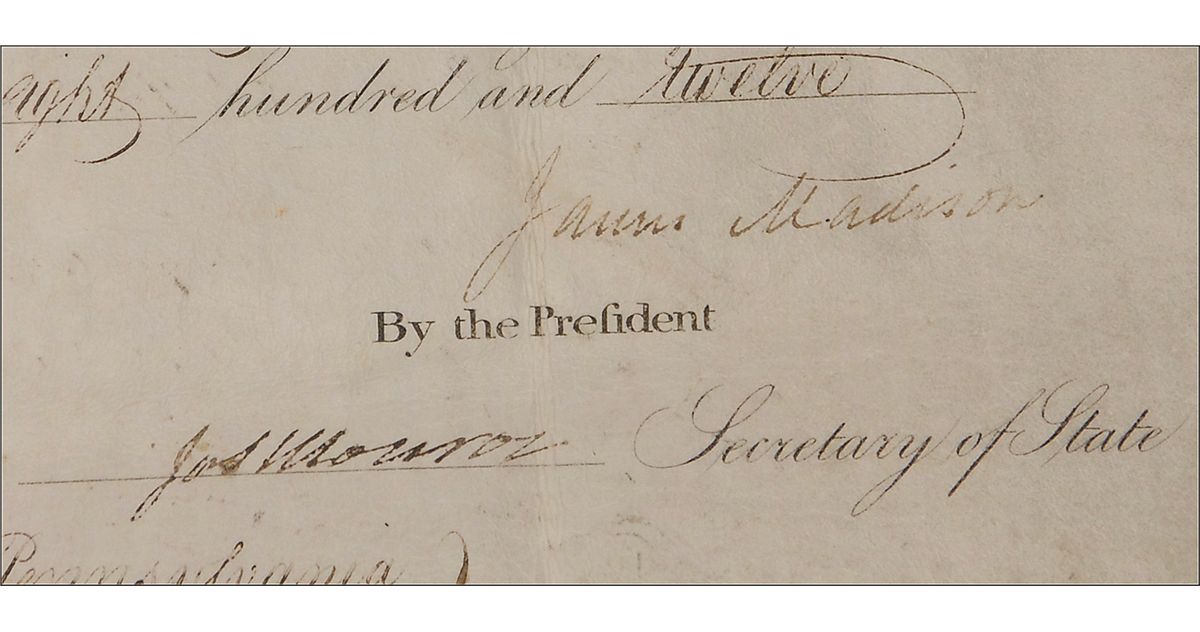 eight hundred and twelve
James Madison
By the Preſident
Jas Monroe Secretary of State
Pennsylvania